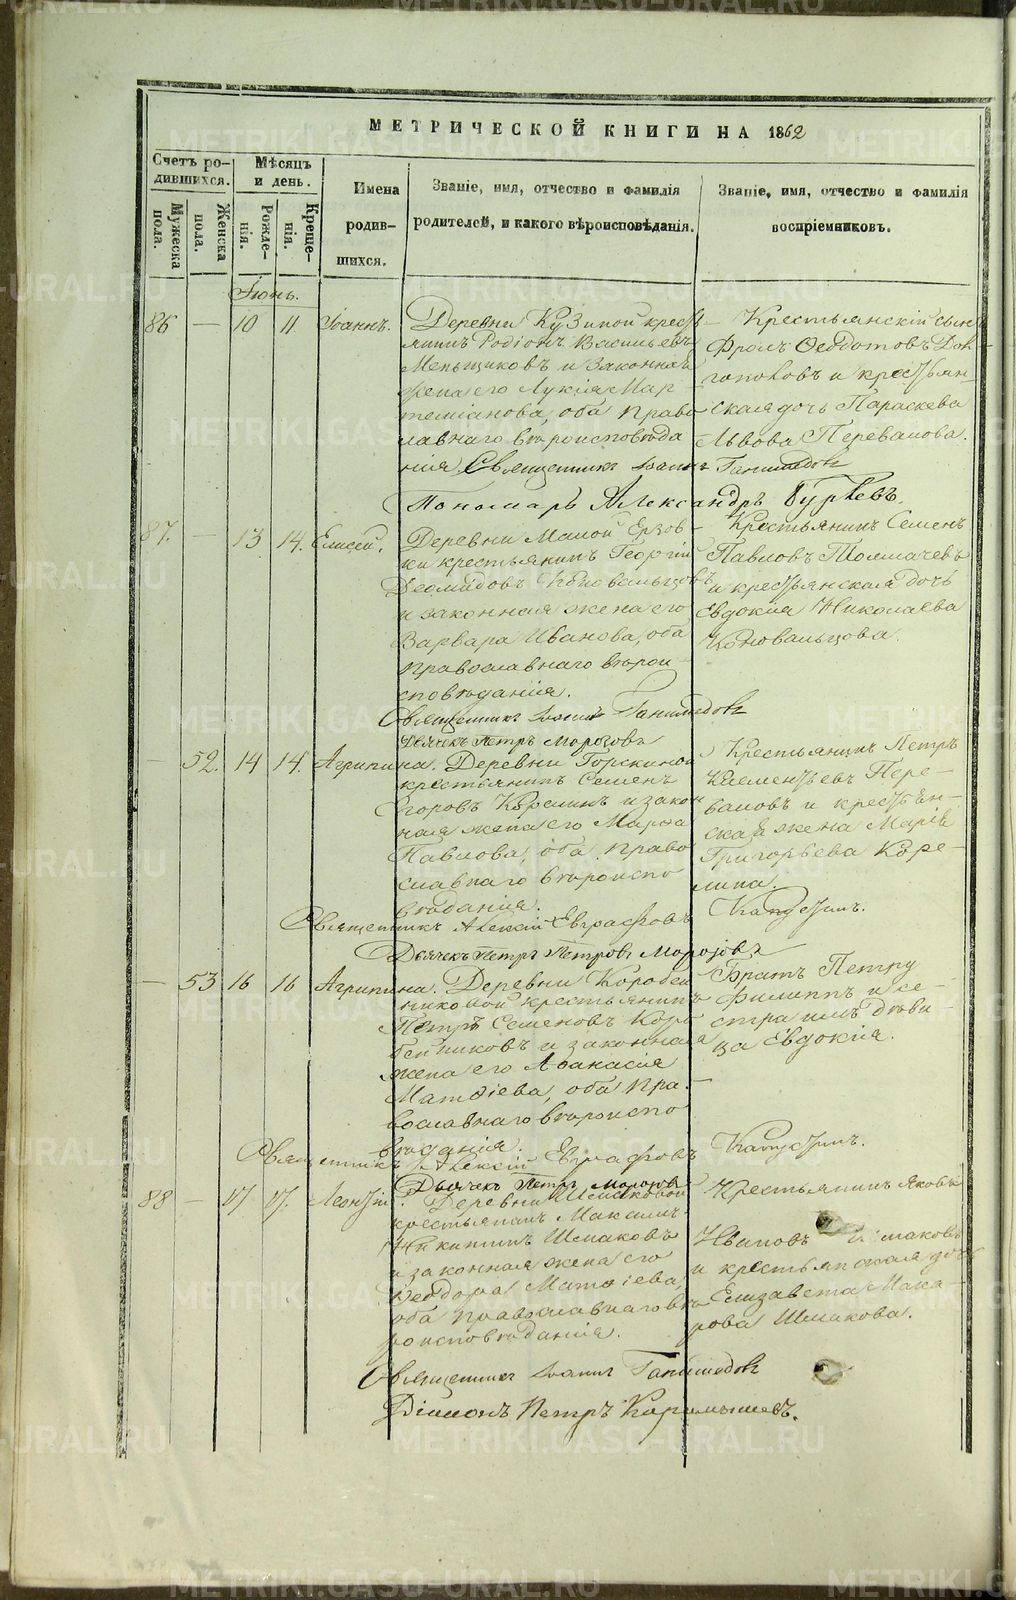 МЕТРИЧЕСКОЙ КНИГИ НА 1862
Счетъ ро-
дившихся.
Мѣсяцъ
и день.
Имена
родив-
шихся.
Званіе, имя, отчество и фамилія
родителей, и какого вѣроисповѣданія.
Званіе, имя, отчество и фамилія
воспріемниковъ.
Мужеска
пола.
Женска
пола.
Рожде-
нія.
Креще-
нія.
Іюнь.
86 — 10 11. Іоаннъ.
Деревни Кузиной кресть-
янинъ Родіонъ Васильевъ
Меньщиковъ и законная
жена его Лукія Мар
теміанова, оба право
славнаго вѣроисповѣда
нія Священникъ Іоаннъ Ганимедовъ
Пономарь Александръ Гурьевъ.
Крестьянскій сынъ
Фролъ Ѳедотовъ
и кресть ян-
ская дочь Параскева
Львова Перевалова.
87. — 13 14. Елисей.
Деревни Малой Ерзов-
ки крестьянинъ Георгій
Деомидовъ Коновальцовъ
и законная жена его
Варвара Иванова, оба
православнаго вѣрои-
сповѣданія.
Священникъ Іоаннъ Ганимедовъ
Дьячекъ Петръ Морозовъ
Крестьянинъ Семенъ
Павловъ Толмачевъ
и крестьянская дочь
Евдокия Николаева
Коновальцова.
52. 14 14. Агрипина.
Деревни Горскиной
крестьянинъ Семенъ
Егоровъ Корелинъ и закон
ная жена его Марѳа
Павлова, оба право
славнаго вѣроиспо
вѣданія.
Священникъ Алексій Евграфовъ Капустинъ.
Дьячекъ Петръ Петровъ Морозовъ
Крестьянинъ Петръ
Клементьевъ Пере-
валовъ и крестьян-
ская жена Марія
Григорьева Коре-
лина.
— 53 16 16 Агрипина.
Деревни Коробей
никовой крестьянинъ
Петръ Семеновъ Коро
бейниковъ и законная
жена его Аѳанасія
Матѳіева, оба пра-
вославнаго вѣроиспо
вѣданія.
Священникъ Алексій Евграфовъ Капустинъ.
Дьячекъ Петръ Морозовъ
Братъ Петру
Филиппъ и се-
стра имъ дѣви
ца Евдокія.
88 — 17 17. Леонтій.
Деревни Шмаковой
крестьянинъ Максимъ
Никитинъ Шмаковъ
и законная жена его
Ѳеодора Матѳіева,
оба православнаго вѣ
роисповѣданія.
Священникъ Іоаннъ Ганимедовъ
Діаконъ Петръ Карамышевъ.
Крестьянинъ Яковъ
Ивановъ Шмаковъ
и крестьянская дочь
Елизавета Мака-
рова Шмакова.
METRIKI.GASO-URAL.RU